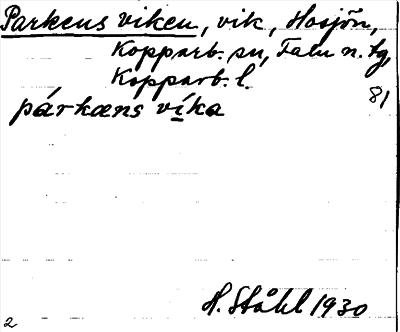 Parkens viken, vik, Hosjön,
Kopparb. sn, Falu n. tg,
Kopparb. l.
81
párkæns víka
H. Ståhl 1930
2